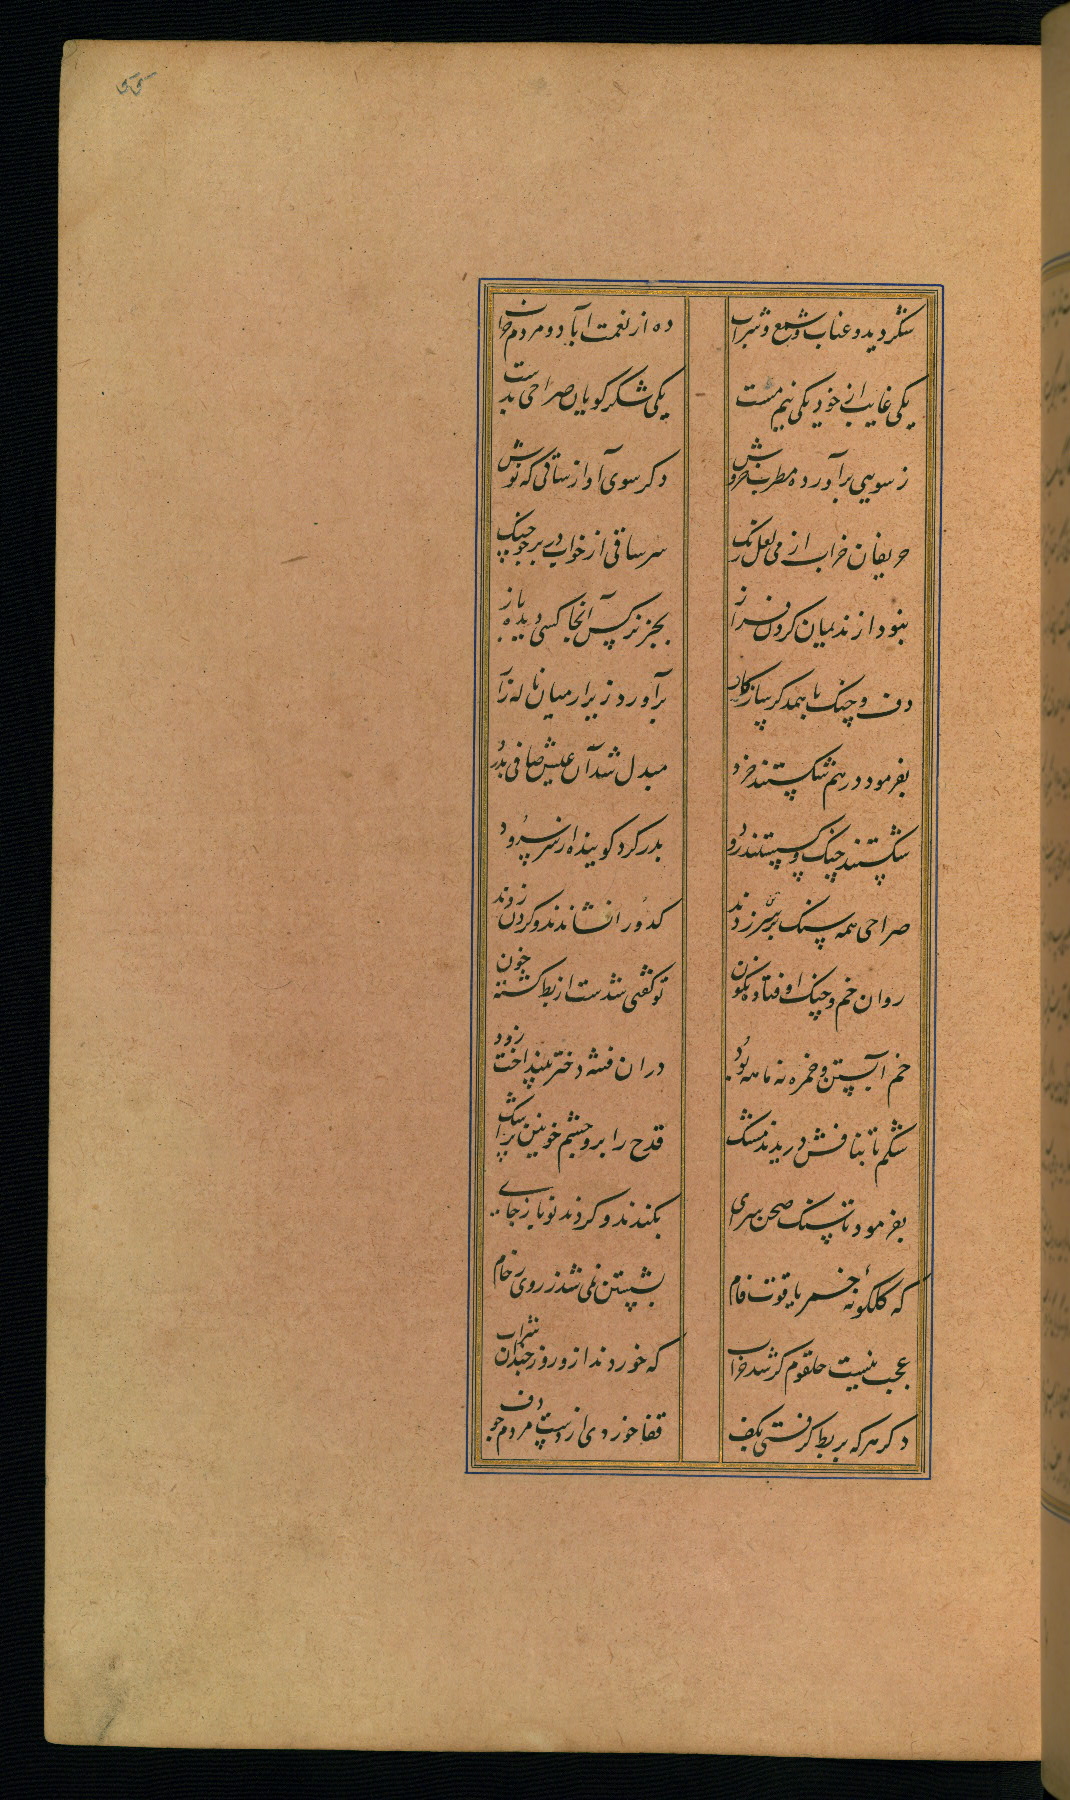 ۵۵
شکر دید و عناب و شمع و شراب
ده از نعمت آباد و مردم خراب
یکی غایب از خود یکی نیم مست
یکی شکر گویان صراحی بدست
ز سویی برآورده مطرب خروش
دکر سوی آواز ساقی که نوش
حریفان خراب از می لعل رنک
سر ساقی از خواب در بر چو چنک
نبود از ندیمان کردن فراز
بجز نرکس آنجا کسی دیده باز
دف و چنک با یکدکر سازکار
برآورد زیر از میان ناله زار
بفرمود در هم شکستند خرد
مبدل شد آن عیش صافی بدرد
شکستند چنک و کسستند رود
بدر کرد کوینده از سر سرود
صراحی همه سنک بر سر زدند
کدو را فشاندند و کردن زدند
روان خم و چنک اوفتاده نکون
تو کفتی شدست از بط کشته خون
خم آبستن و خمره نه ماهه بود
در آن فتنه دختر بینداخت زود
شکم تا بنافش دریدند مشک
قدح را برو چشم خونین پر اشک
بفرمود تا سنک صحن سرای
بکندند و کردند نو باز جای
که کلکونه خمر یاقوت فام
بشستن نمی شد ز روی رخام
عجب نیست حلقوم کر شد خراب
که خوردند از و روز چندان شراب
دکر هر که بربط کرفتی بکف
قفا خوردی از دست مردم چو دف